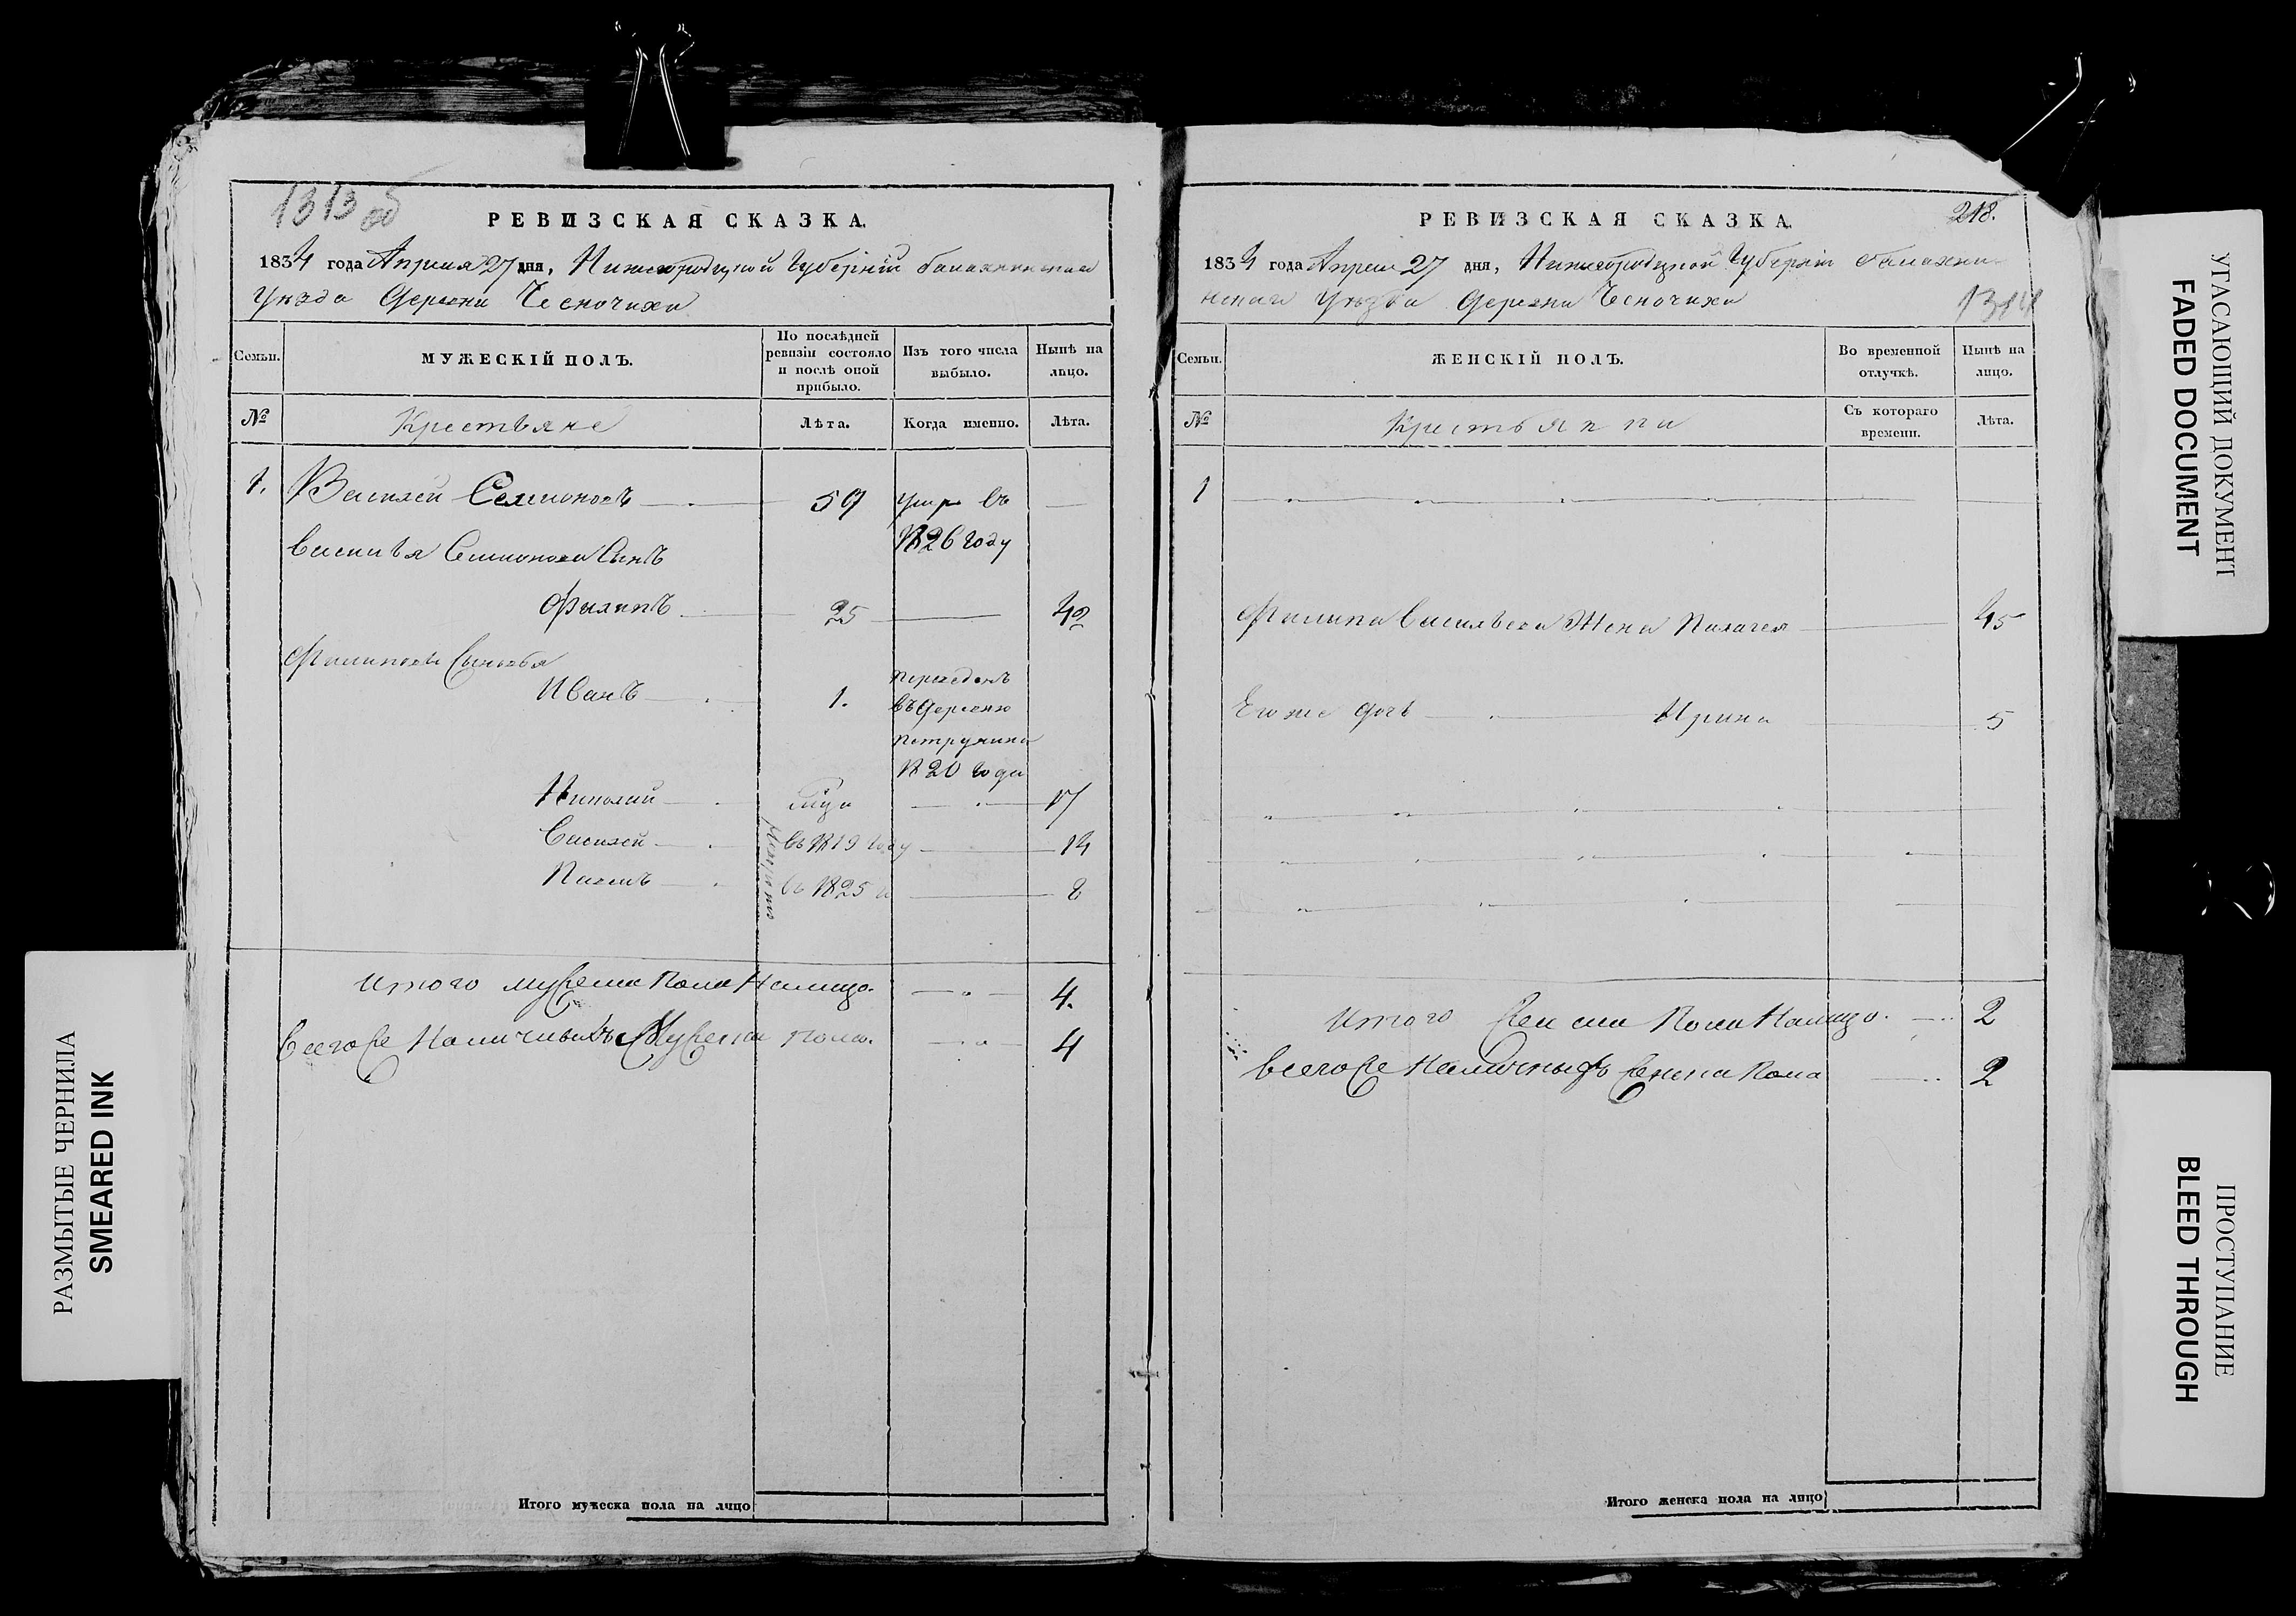 1313 об
РЕВИЗСКАЯ СКАЗКА.
1834 года Апреля 27 дня, Нижегородской Губернiи балахнинскаго
Уезда Деревни Чесночихи
Семьи.
МУЖЕСКIЙ ПОЛЪ.
По послѣдней ревизiи состояло и послѣ оной прибыло.
Изъ того числа выбыло.
Нынѣ на лицо.
№
Крестьяне
Лѣта.
Когда именно.
Лѣта.
1. Василей Семионовъ 59 умре въ
1826 году
Василья Семионова Сынъ
Филипъ 25 42
Филиповы Сыновья
Иванъ 1. переведенъ
въ Деревню
1820 года
Николай 17
Василей въ 1819 году 14
Павелъ въ 1825 8
Итого мужеска Пола Налицо. 4.
Всегоже Наличныхъ Мужеска пола. 4
Итого мужеска пола на лицо
РЕВИЗСКАЯ СКАЗКА.
218.
1834 года Апреля 27 дня, Нижегородской Губернiи балахни-
нскаго Уезда Деревни Чесночихи
1314
Семьи.
ЖЕНСКIЙ ПОЛЪ.
Во временной отлучкѣ.
Нынѣ на лицо.
№
Крестьянки
Съ котораго времени.
Лѣта.
1
Филипа Васильева Жена Палагея 45
Его же дочь Ирина 5
Итого женска Пола Налицо. 2
Всегоже Наличныхъ женска Пола 2
Итого женска пола на лицо
РАЗМЫТЫЕ ЧЕРНИЛА
SMEARED INK
УГАСАЮЩИЙ ДОКУМЕНТ
FADED DOCUMENT
ПРОСТУПАНИЕ
BLEED THROUGH